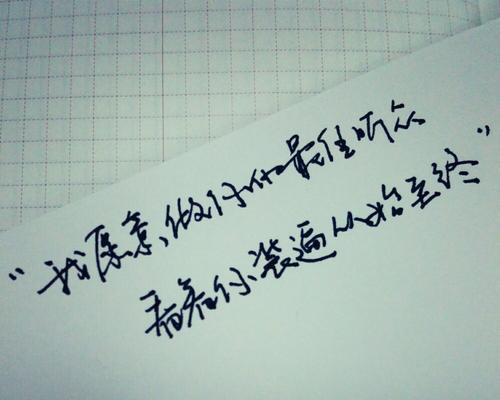 “我愿意,做你的最佳听众
看着你装逼从始至终”